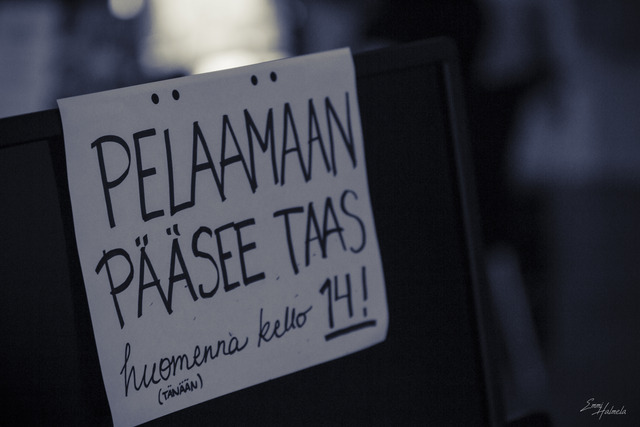 PELAAMAAN
PÄÄSEE TAAS
huomenna kello 14!
(TÄNÄÄN)
Emmi
Halmela